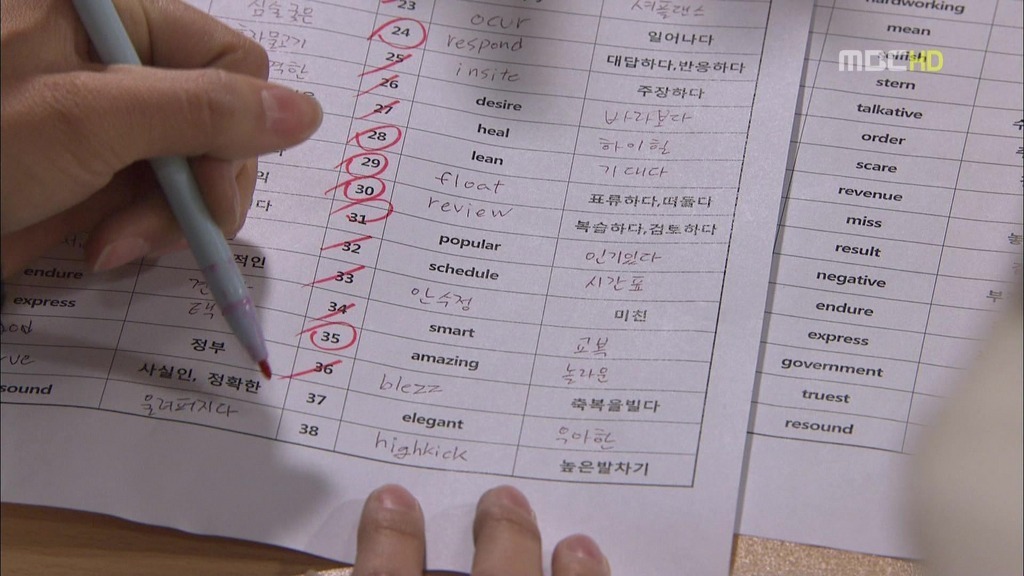 심술궂은 23 셔플댄스 hardworking
24 ocur 일어나다 mean
25 respond 대답하다,반응하다
26 insite 주장하다 stern
27 desire 바라보다 talkative
28 heal 하이힐 order
29 lean 기대다 scare
30 float 표류하다,떠돌다 revenue
31 review 복습하다,검토하다 miss
적인 32 popular 인기있다 result
endure 33 schedule 시간표 negative
express 34 안수정 미친 endure
정부 35 smart 교복 express
사실인, 정확한 36 amazing 놀라운 government
sound 울려퍼지다 37 blezz 축복을빌다 truest
38 elegant 우아한 resound
highkick 높은발차기
MBC HD